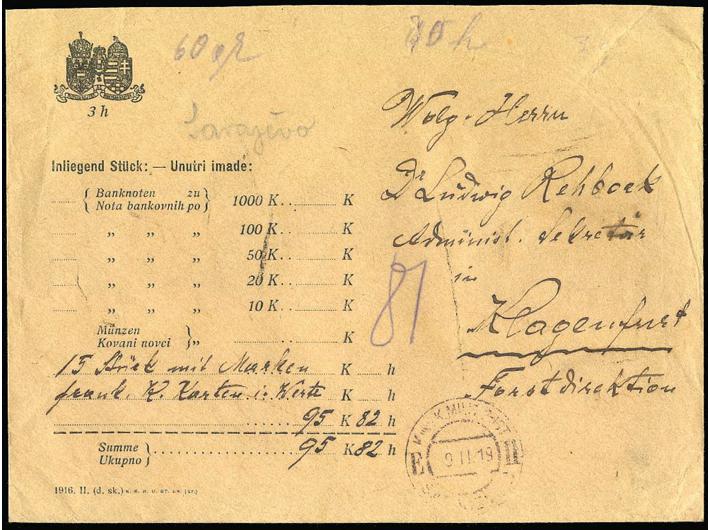 60 gr
80 h
3 h
Sarajevo
Inliegend Stück: — Unutri imade:
Banknoten zu
Nota bankovnih po
1000 K. K
„ „ „ 100 K. K
„ „ „ 50 K. K
„ „ „ 20 K. K
„ „ „ 10 K. K
Münzen
Kovani novci „ K
15 Stück mit Marken K h
frank. K. Karten i. Werte K h
95 K 82 h
Summe
Ukupno
95 K 82 h
1916. II. (d. sk.)
Wolg. Herrn
Dr Ludwig Rehbock
Administ. Sekretär
in
Klagenfurt
Forstdirektion
81
E 9 II 19 II